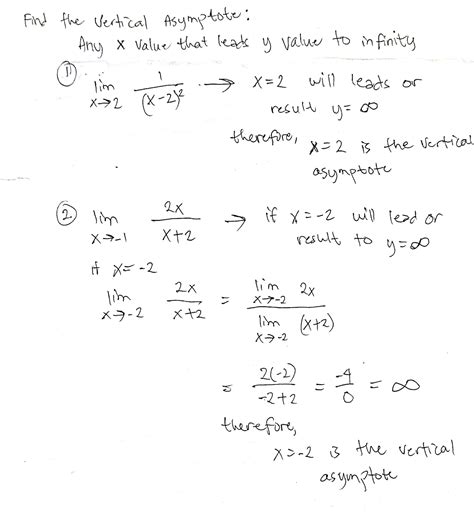 Find the Vertical Asymptote:
Any x value that leads y value to infinity
① lim x→2 1/(x-2)² → x=2 will leads or
result y=∞
therefore, x=2 is the vertical
asymptote
② lim x→-1 2x/(x+2) → if x=-2 will lead or
result to y=∞
if x=-2
lim x→-2 2x/(x+2) = lim x→-2 2x / lim x→-2 (x+2)
= 2(-2)/(-2+2) = -4/0 = ∞
therefore,
x=-2 is the vertical
asymptote